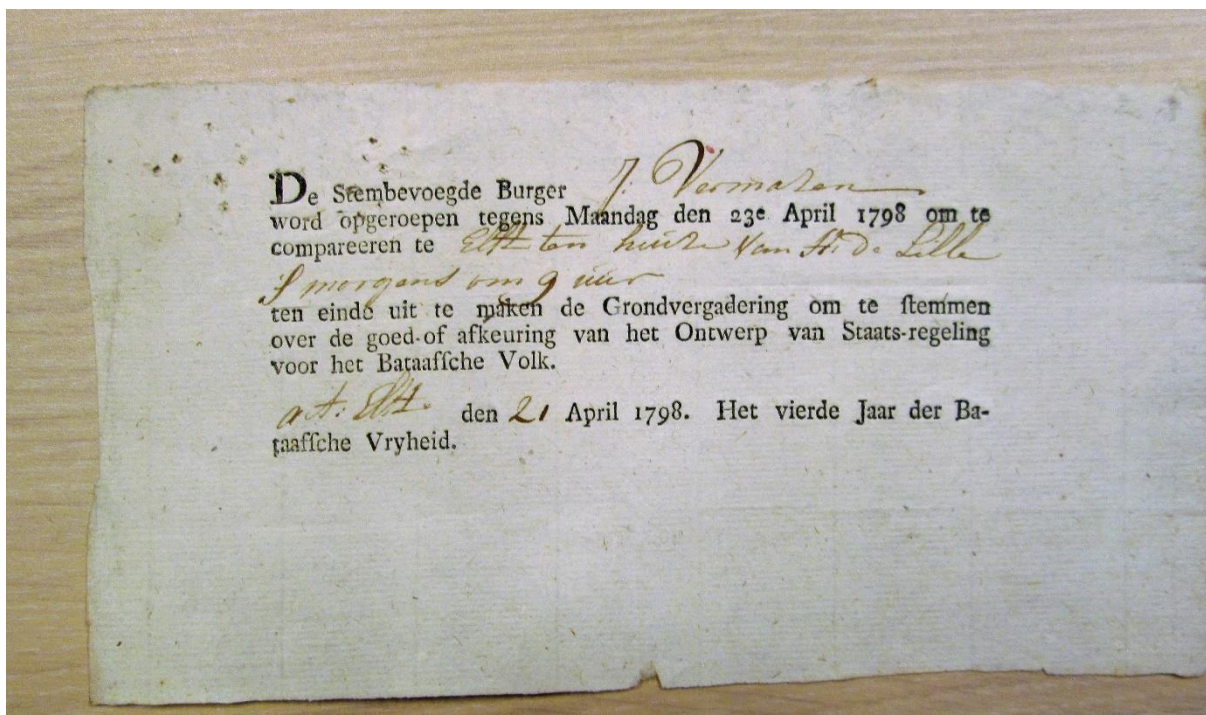 De Stembevoegde Burger J: Vermaten
word opgeroepen tegens Maandag den 23e April 1798 om te
compareeren te Elst ten huize van H: De Lille
S morgens om 9 uur
ten einde uit te maken de Grondvergadering om te ſtemmen
over de goed-of afkeuring van het Ontwerp van Staats-regeling
voor het Bataafſche Volk.
act: Elst. den 21 April 1798. Het vierde Jaar der Ba-
taafſche Vryheid.